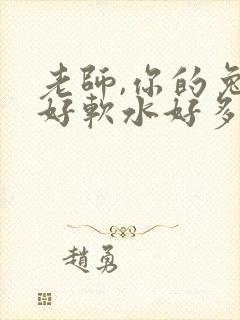 老師,你的兔
好軟水好多
趙勇